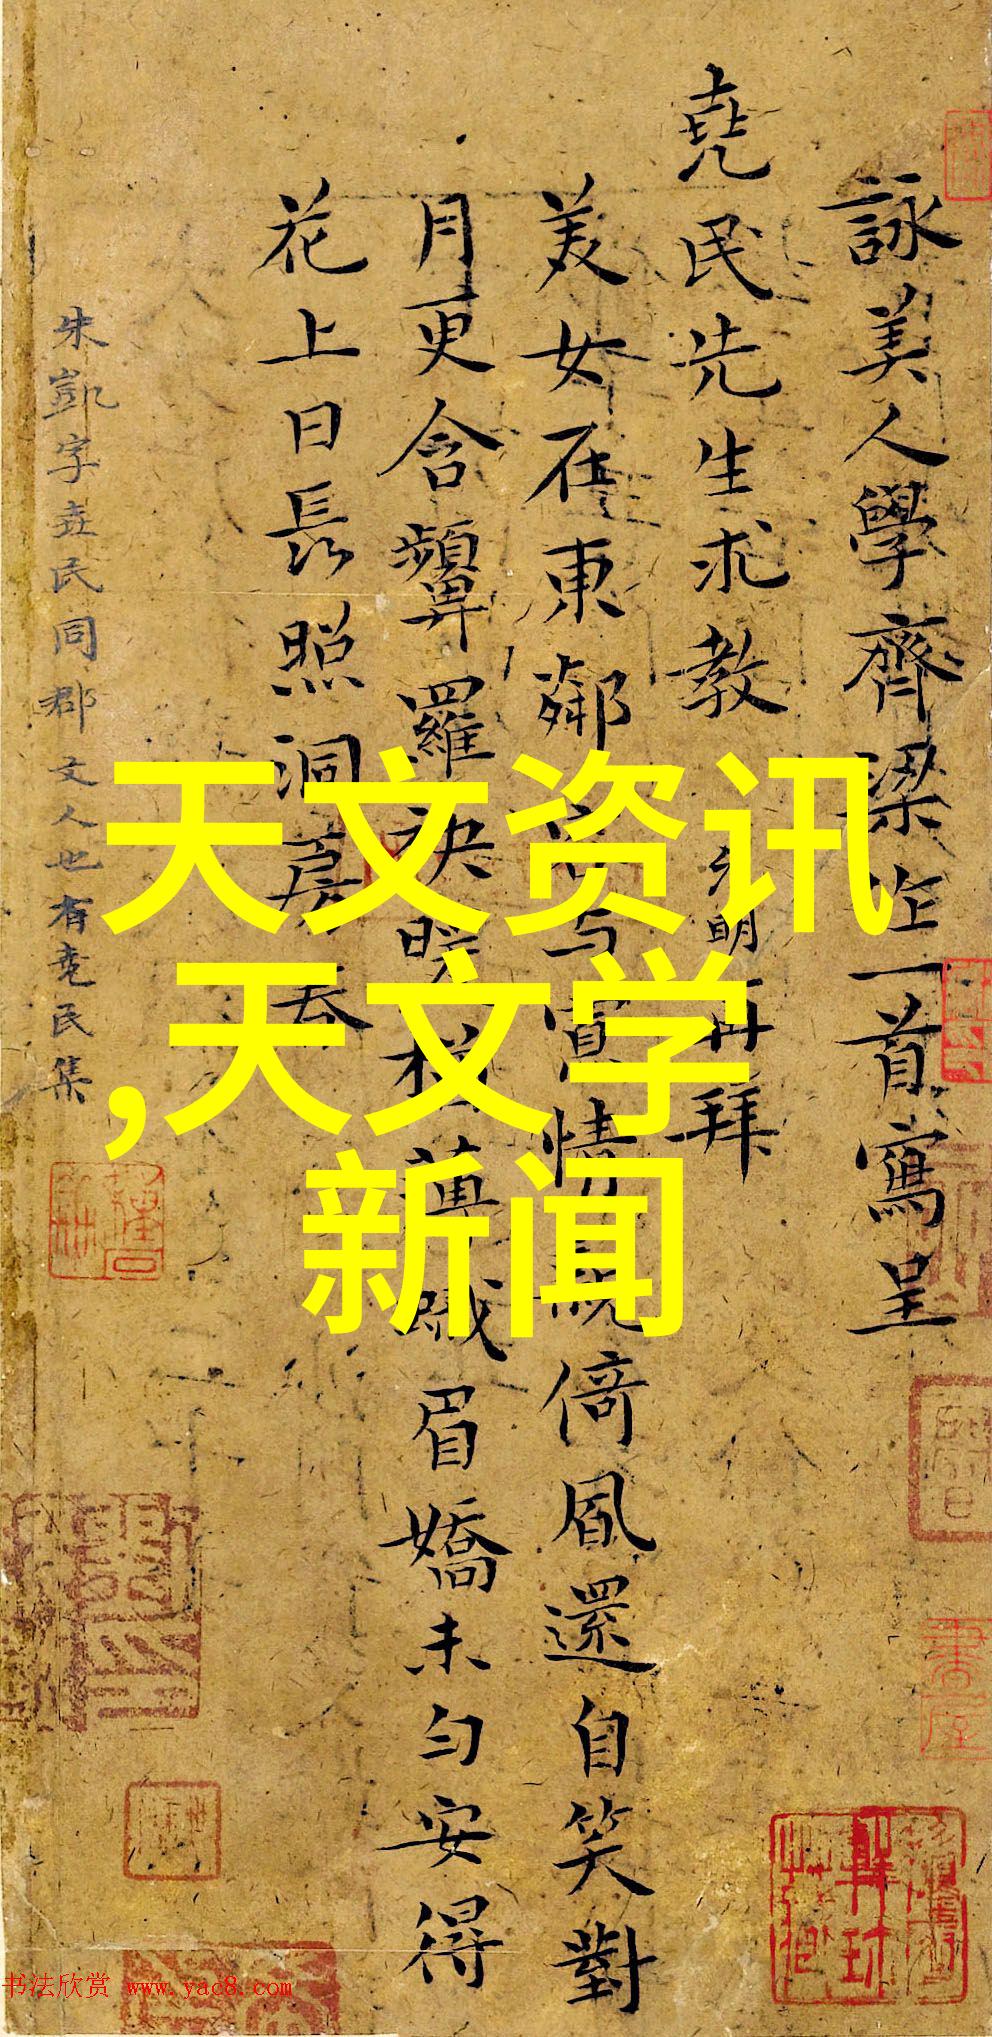 詠美人學齊梁作一首寫呈
堯民先生求教 元明再拜
美女在東鄰 與 情 倚風還自笑對
月更含顰羅袂暖 薄 眉嬌未勻安得
花上日長照洞房春
朱凱字堯民同郡文人也有堯民集
天文资讯
,天文学
新闻
书法欣赏 www.yac8.com